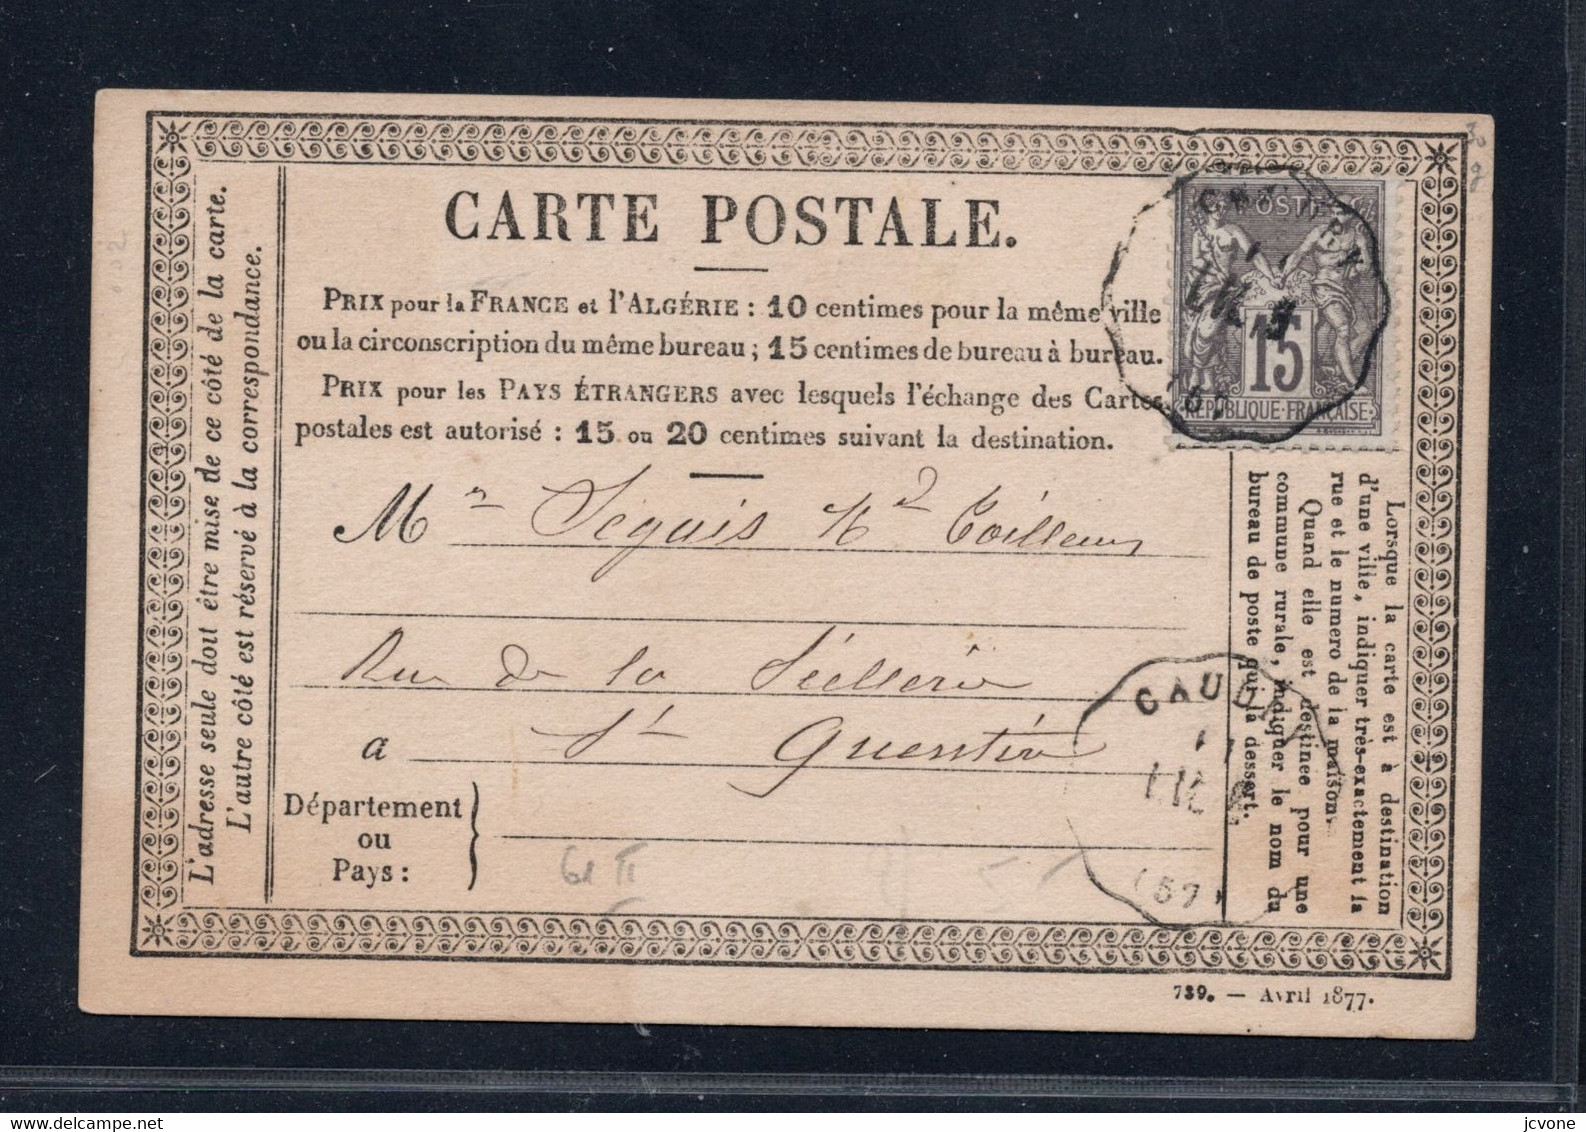 CARTE POSTALE.
PRIX pour la FRANCE et l'ALGÉRIE : 10 centimes pour la même ville
ou la circonscription du même bureau ; 15 centimes de bureau à bureau.
PRIX pour les PAYS ÉTRANGERS avec lesquels l'échange des Cartes
postales est autorisé : 15 ou 20 centimes suivant la destination.
L'adresse seule doit être mise de ce côté de la carte.
L'autre côté est réservé à la correspondance.
POSTES
15
REPUBLIQUE FRANÇAISE
Mr Seguis Md Tailleur
Rue de la Sellerie
a St Quentin
Département
ou
Pays :
Lorsque la carte est à destination
d'une ville, indiquer très-exactement la
rue et le numero de la maison.
Quand elle est destinée pour une
commune rurale, indiquer le nom du
bureau de poste qui la dessert.
CAUDRY
LIL
(59)
739. — Avril 1877.
jcvone